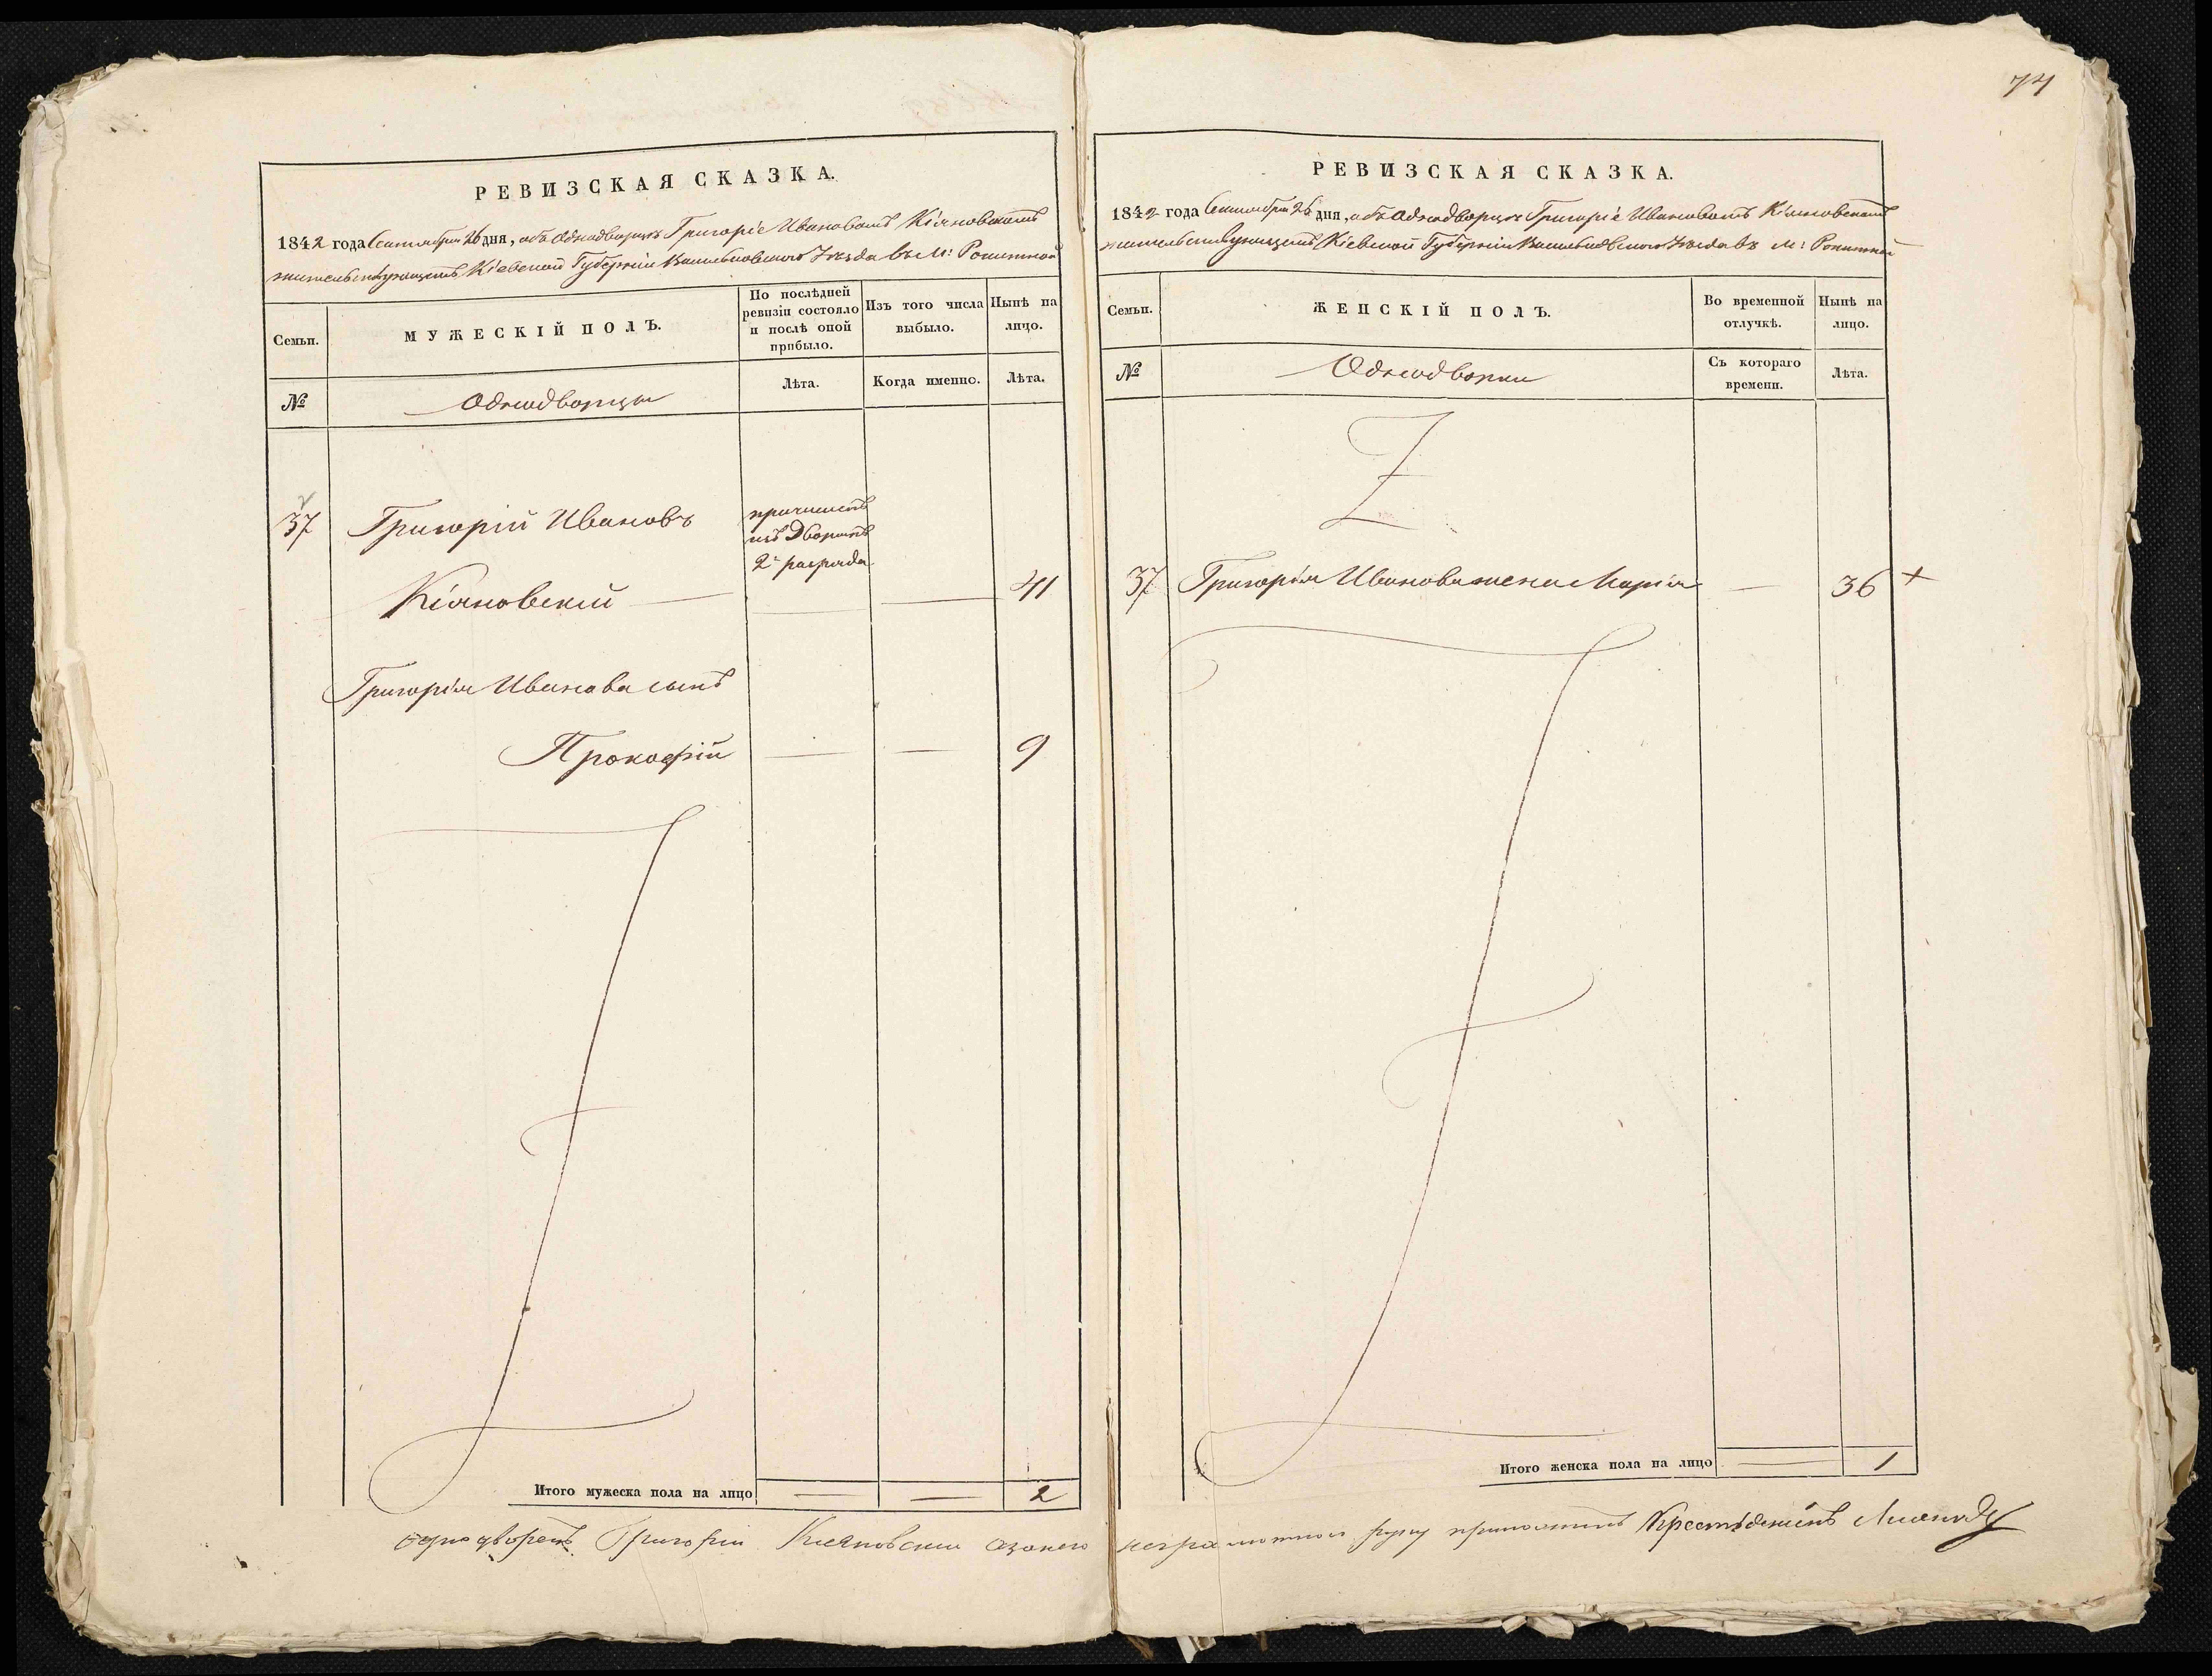 74
РЕВИЗСКАЯ СКАЗКА.
1842 года Сентября 26 дня, объ Однодворцѣ Григоріе Ивановомъ Кіяновскомъ
жительствующемъ Кіевской Губерніи Васильковскаго Уѣзда въ м: Рокитной
Семьи.
МУЖЕСКІЙ ПОЛЪ.
По послѣдней
ревизіи состояло
и послѣ оной
прибыло.
Изъ того числа
выбыло.
Нынѣ на
лицо.
№
Однодворцы
Лѣта.
Когда именно.
Лѣта.
37 Григорій Ивановъ
причисленъ
изъ Дворянъ
2го разряда
Кіяновскій — — — 41
Григорія Иванова сынъ
Прокофій — — 9
Итого мужеска пола на лицо — — 2
РЕВИЗСКАЯ СКАЗКА.
1842 года Сентября 26 дня, объ Однодворцѣ Григоріе Ивановомъ Кіяновскомъ
жительствующемъ Кіевской Губерніи Васильковскаго Уѣзда въ м: Рокитной
Семьи.
ЖЕНСКІЙ ПОЛЪ.
Во временной
отлучкѣ.
Нынѣ на
лицо.
№
Однодворки
Съ котораго
времени.
Лѣта.
37 Григорія Иванова жена Марія — 36 +
Итого женска пола на лицо — 1
однодворецъ Григорій Кияновский азанего неграмотного руку приложилъ